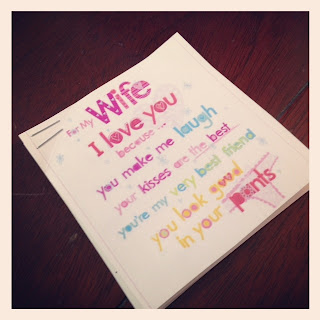 For My Wife
I love you
because ...
you make me laugh
your kisses are the best
you're my very best friend
you look good
in your pants